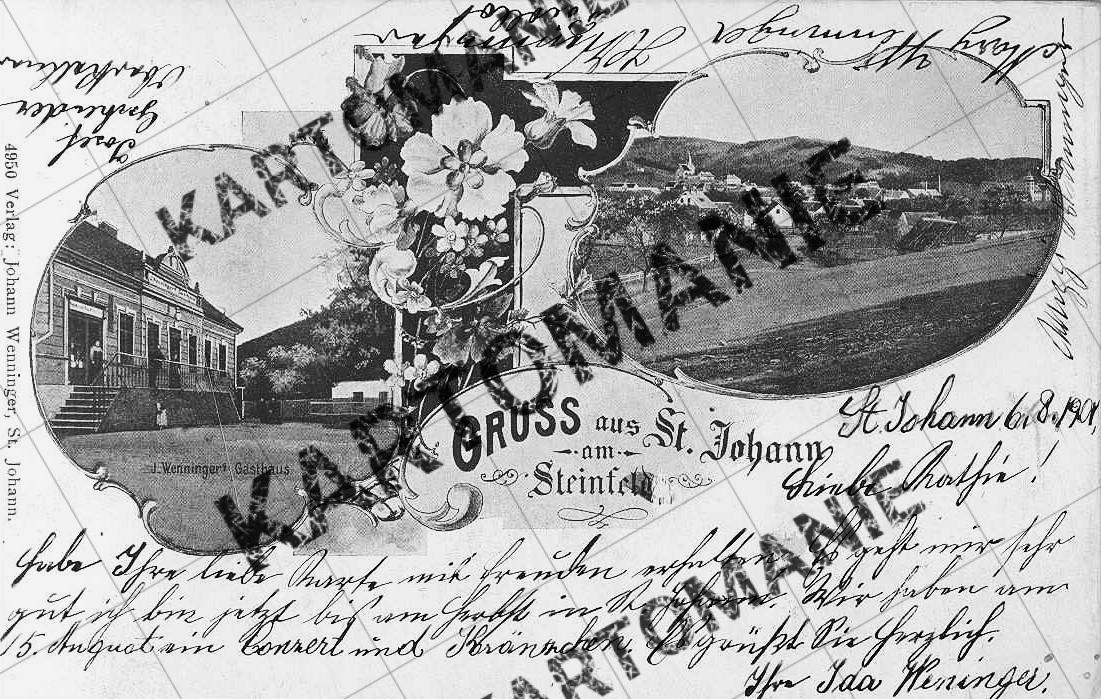 Josef
Mary Wenninger
4950 Verlag: Johann Wenninger, St. Johann.
J. Wenninger's Gasthaus
GRUSS aus St. Johann
am
Steinfeld
St. Johann 6.8.1901,
Liebe Kathie!
Habe Ihre liebe Karte mit freuden erhalten. Es geht mir sehr
gut ich bin jetzt bis am Herbst in St. Johann. Wir haben am
15. August ein Conzert und Kränzchen. Es grüßt Sie Herzlich.
Ihre Ida Wenninger.
KARTOMANIE
KARTOMANIE
KARTOMANIE
KARTOMANIE
KARTOMANIE